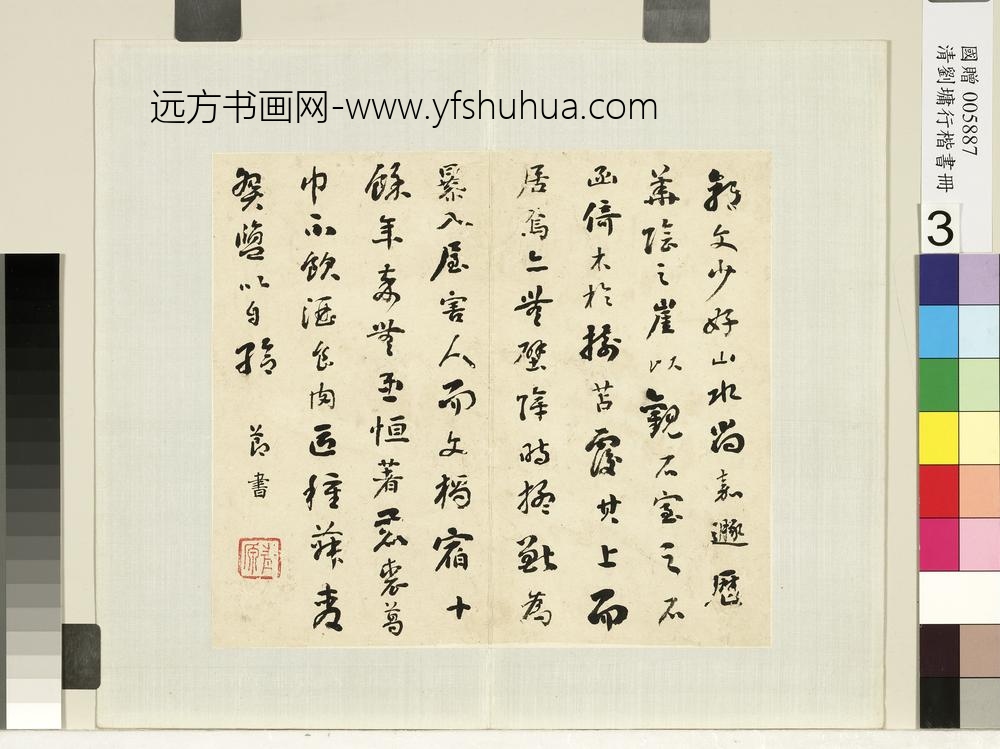 远方书画网-www.yfshuhua.com
郭文少好山水尚嘉遯歷
華陰之崖以觀石室之石
函倚木於樹苫覆其上而
居焉亦無壁障時猛獸為
暴入屋害人而文獨宿十
餘年卒無患恒著鹿裘葛
巾不飲酒食肉區種菽麥
貿鹽以自給 節書
國贈 005887
清劉墉行楷書冊
3